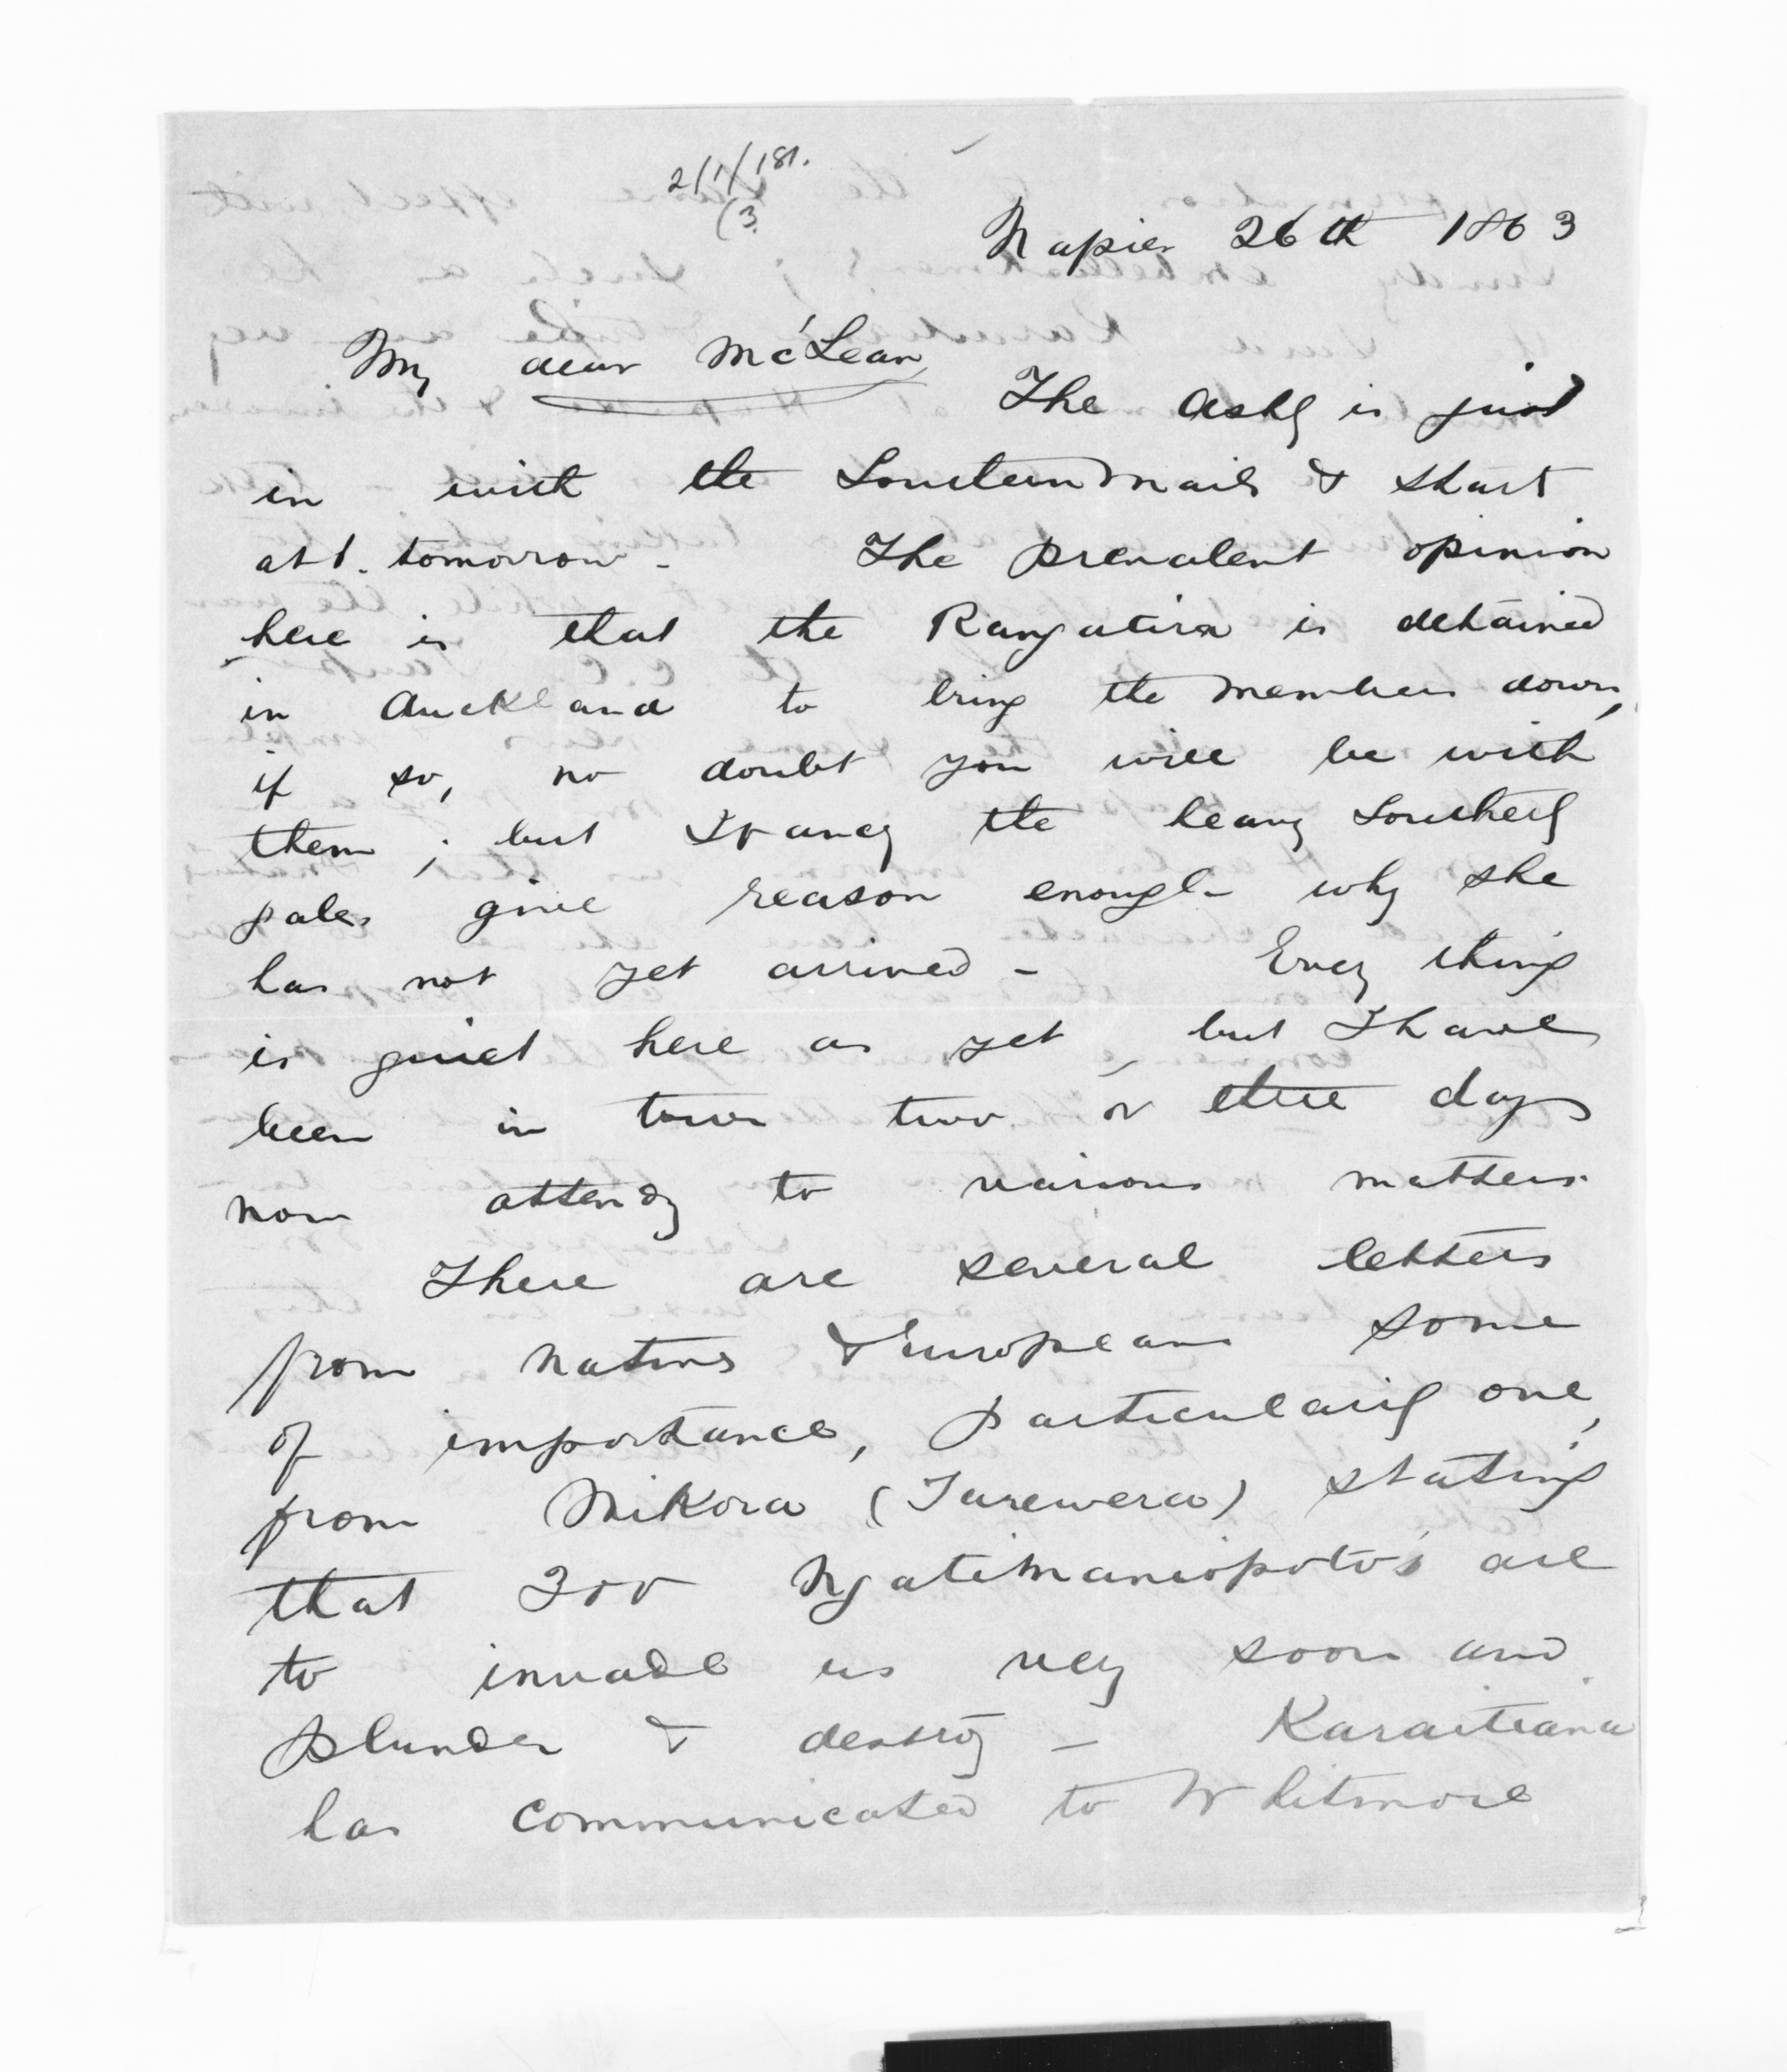 2/1/181.
(3.
Napier 26th 1863
My dear McLean,
The Ashley is just
in with the Southern Mails & start
at 1. tomorrow - The prevalent opinion
here is that the Rangatira is detained
in Auckland to bring the members down,
if so, no doubt you will be with
them; but I fancy the heavy Southerly
gales give reason enough why she
has not yet arrived - Every thing
is quiet here as yet, but I have
been in town two or three days
now attendg to various matters.
There are several letters
from natives & Europeans some
of importance, particularly one,
from Nikora (Tarewera) stating
that 200 Ngatimaniopoto's are
to invade us very soon and
plunder & destroy - Karaitiana
has communicated to Whitmore